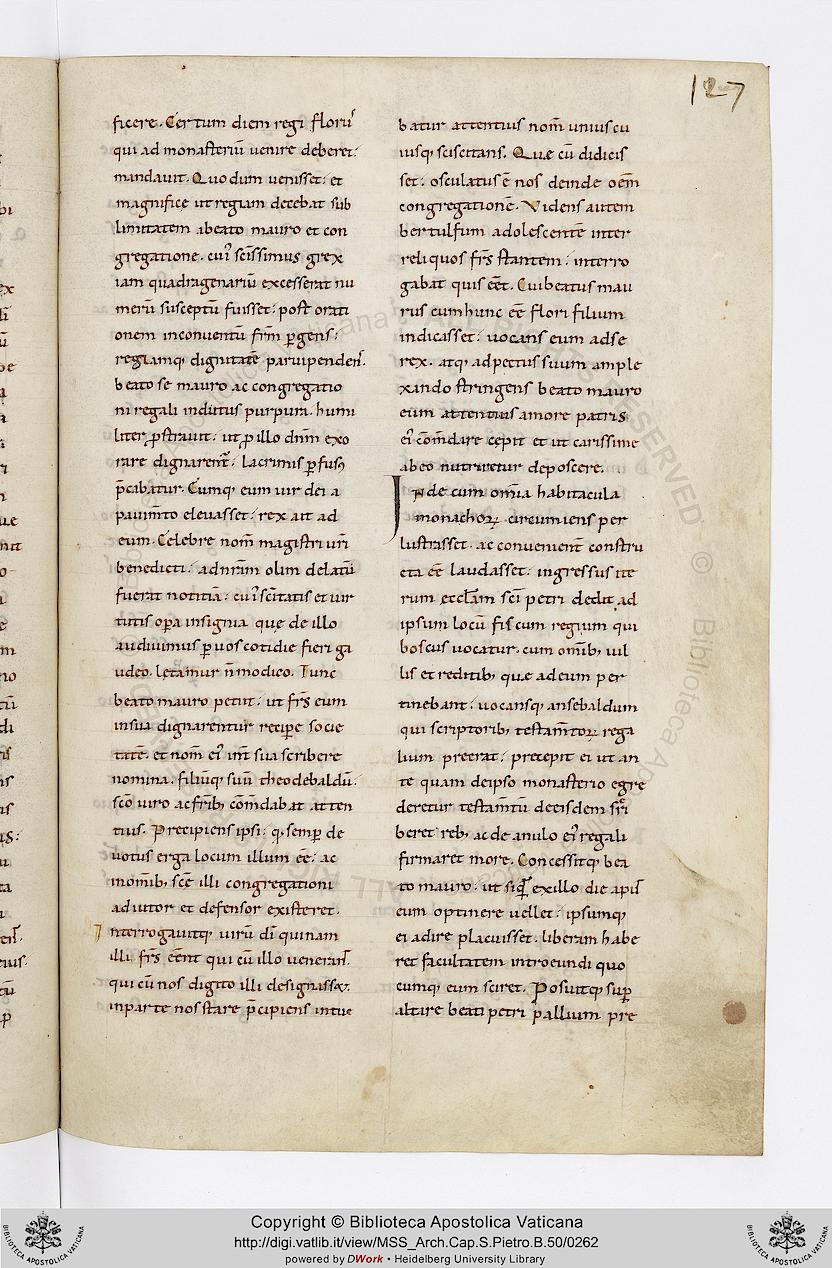 127
ficere. Certum diem regi florus
qui ad monasteriũ uenire deberet:
mandauit. Quo dum uenisset: et
magnifice ut regiam decebat sub
limitatem a beato mauro et con
gregatione. cui᾽ scissimus grex
iam quadragenariũ excesserat nu
merũ susceptũ fuisset: post orati
onem in conuentũ frm̃ ꝑgens:
regiamq; dignitatẽ paruipenden̄.
beato se mauro ac congregatio
ni regali indutus purpura. humi
liter ꝓstrauit: ut ꝓ illo dnm̃ exo
rare dignarent᾽. lacrimis ꝑfusꝰ
p̄cabatur. Cumq; eum uir dei a
pauim̃to eleuasset: rex ait ad
eum. Celebre nom̃ magistri uri᾽
benedicti: ad nr̃am olim delatũ
fuerat notitiã: cui᾽ sc̃itatis et uir
tutis oꝑa insignia quę de illo
audiuimus ꝑ uos cotidie fieri ga
udeo. letamur ñ modico. Tunc
beato mauro petiit: ut frs̃ eum
in sua dignarentur recipe socie
tatẽ. et nom̃ ei᾽ int᾽ sua scribere
nomina. filiũq; suũ theodebaldũ.
sc̃o uiro ac frib; com̃dabat atten
tius. Precipiens ipsi: q; semꝑ de
uotus erga locum illum eẽ: ac
in om̃ib; sc̃e illi congregationi
adiutor et defensor existeret.
Interrogauitq; uirũ di᾽ quinam
illi frs̃ eẽnt qui cũ illo ueneran᾽t.
qui cũ nos digito illi designasset.
in parte nos stare p̄cipiens intue
batur attentius nom̃ unius cu
iusq; sciscitans. Quę cũ didicis
set: osculatus ẽ nos deinde oẽm
congregationẽ. Videns autem
bertulfum adolescentẽ inter
reliquos frs̃ stantem: interro
gabat quis eẽt. Cui beatus mau
rus cum hunc eẽ flori filium
indicasset: uocans eum ad se
rex. atq; ad pectus suum ample
xando stringens beato mauro
eum attentius amore patris
ei᾽ com̃dare cepit et ut carissime
ab eo nutriretur deposcere.
Inde cum om̃ia habitacula
monachoꝝ circumiens per
lustrasset. ac conuenient᾽ constru
cta eẽ laudasset: ingressus ite
rum eccl̃am sc̃i petri dedit ad
ipsum locũ fiscum regium qui
boscus uocatur. cum om̃ib; uil
lis et reditib; quę ad eum per
tinebant: uocansq; ansebaldum
qui scriptorib; testam̃toꝝ rega
lium preerat: precepit ei ut an
te quam de ipso monasterio egre
deretur testam̃tũ de eisdem scri
beret reb; ac de anulo ei᾽ regali
firmaret more. Concessitq; bea
to mauro: ut siq̃ɫ ex illo die apud
eum optinere uellet: ipsumq;
ei adire placuisset. liberam habe
ret facultatem introeundi quo
cumq; eum sciret. Posuitq; suꝑ
altare beati petri pallium pre
Copyright © Biblioteca Apostolica Vaticana
http://digi.vatlib.it/view/MSS_Arch.Cap.S.Pietro.B.50/0262
powered by DWork • Heidelberg University Library